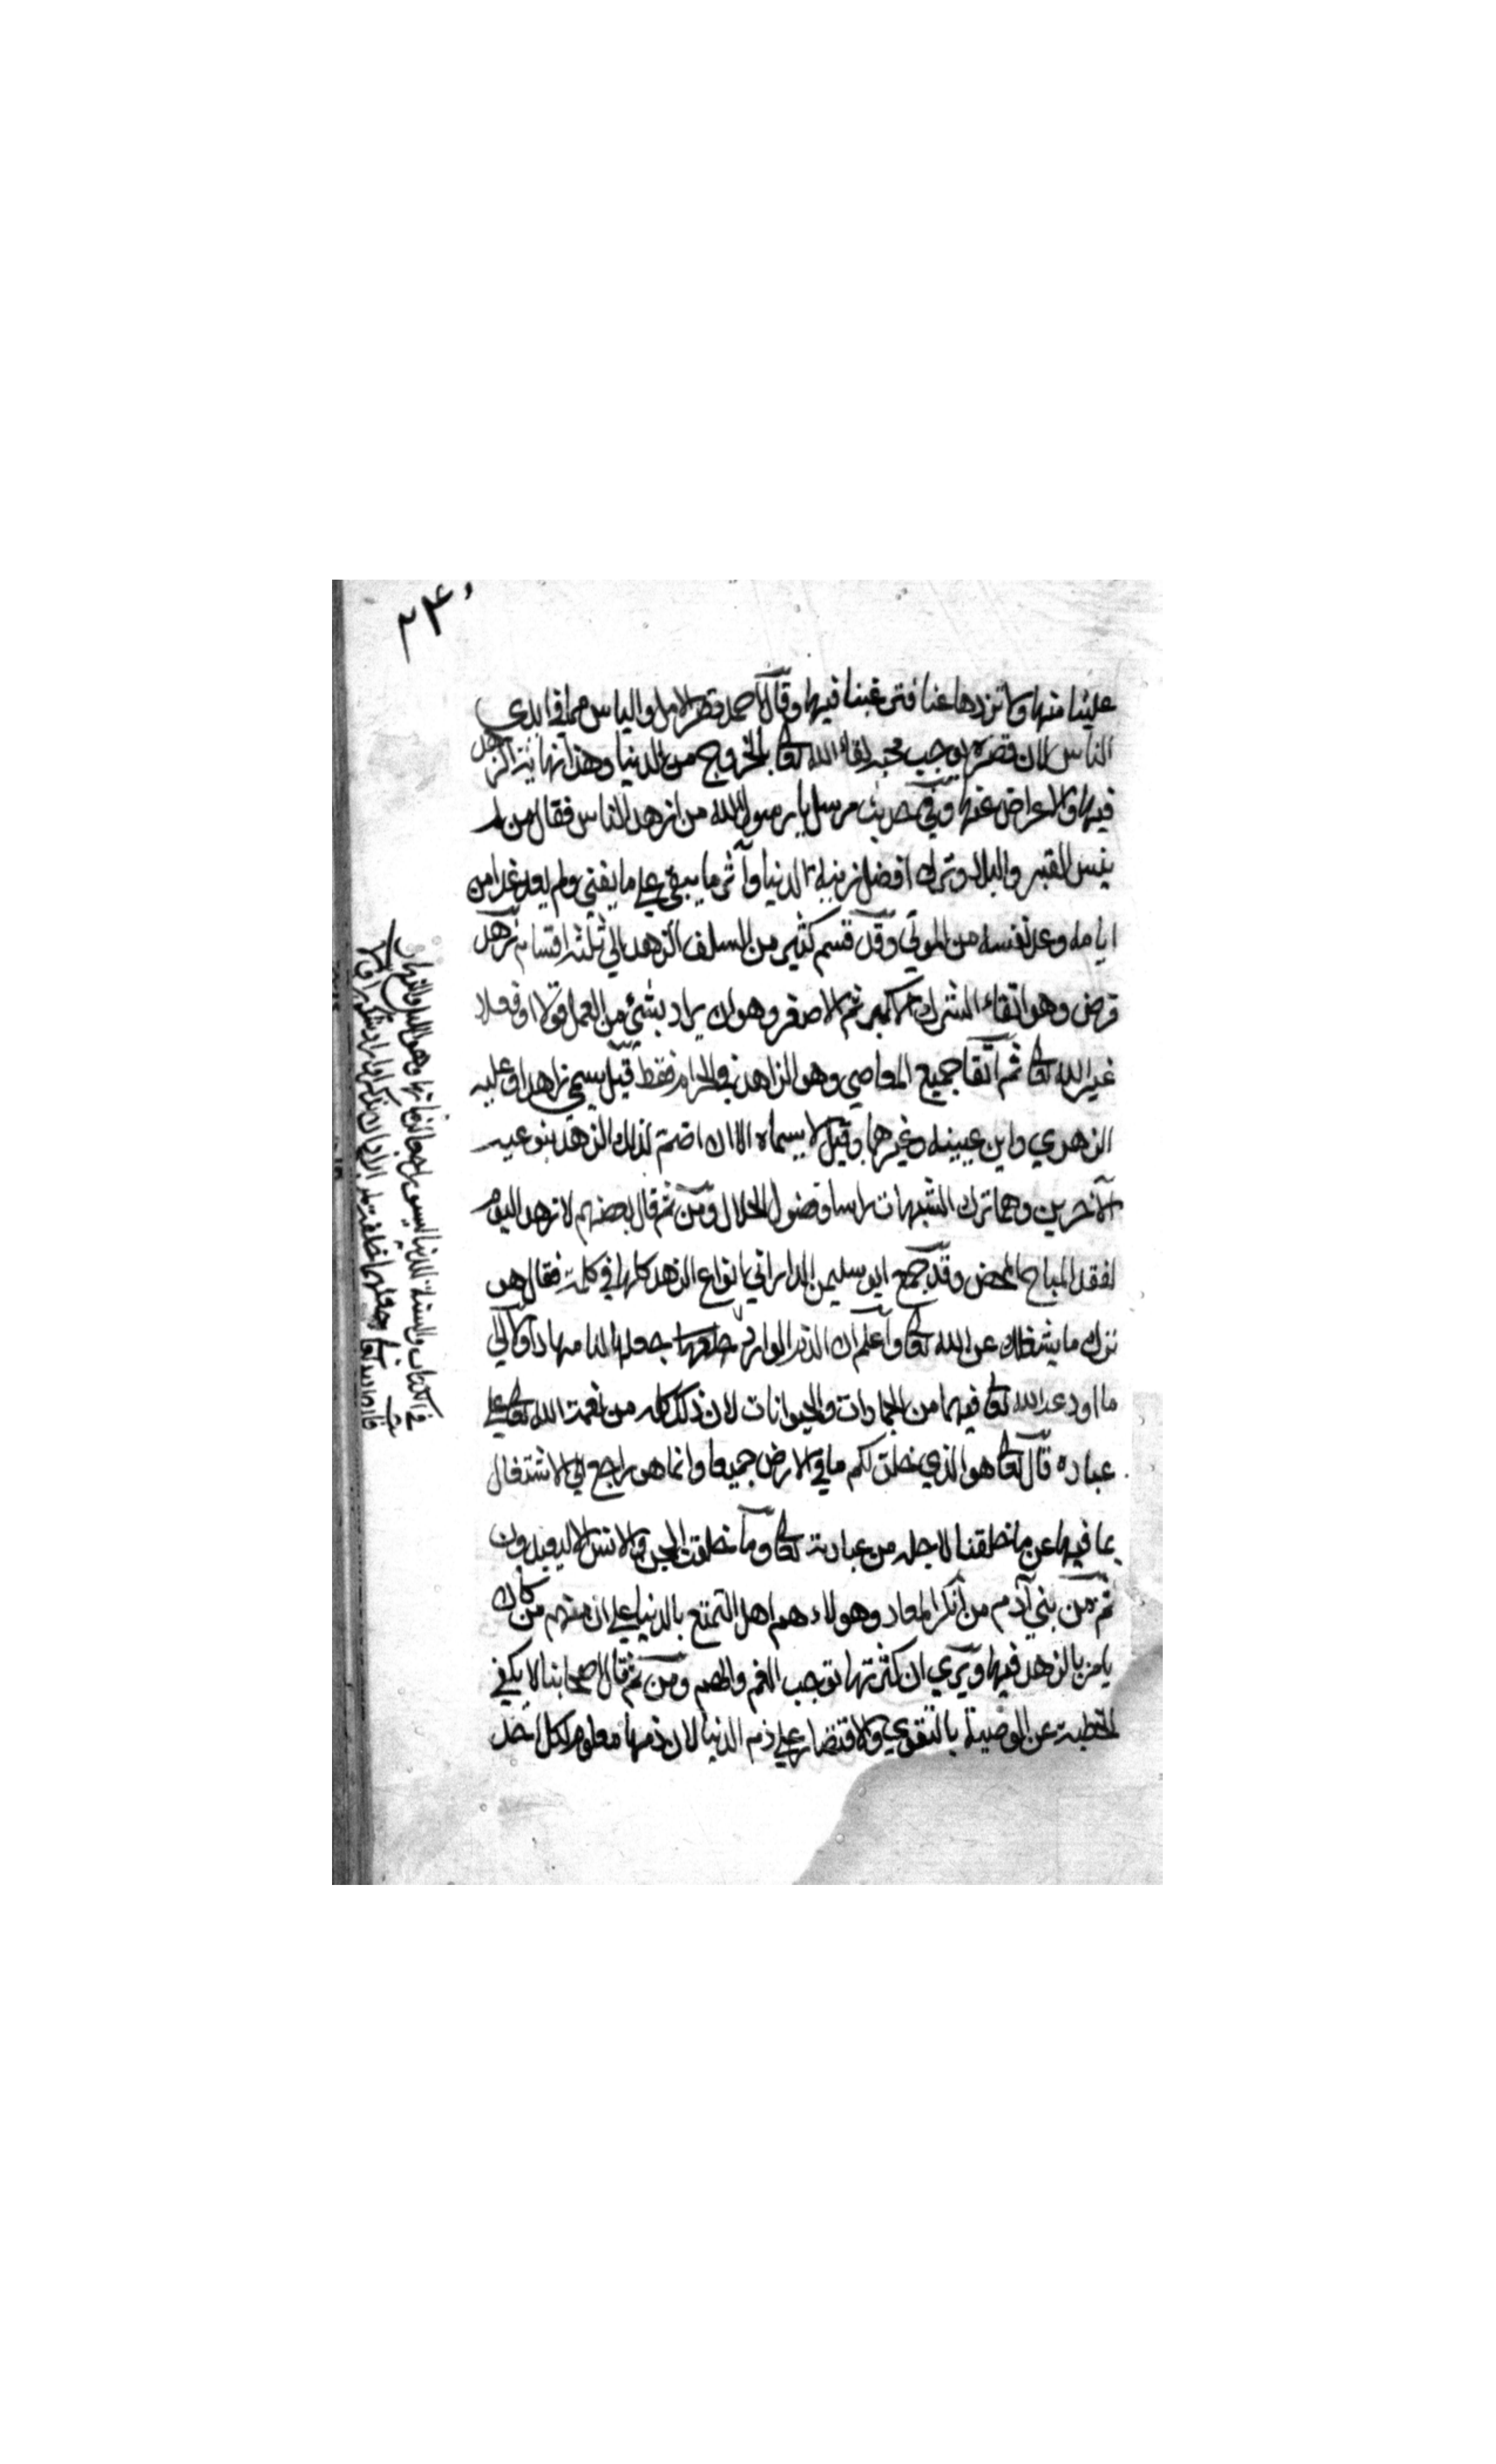 ٢٤٠
علينا منها ولا تزدها عنا فترغبنا فيها وقال احمد قصر الامل والياس مما في ايدي
الناس لان قصره يوجب محبة لقاء الله تعا بالخروج من الدنيا وهذا نهاية الزهد
فيها والاعراض عنها وفي حديث مرسل يا رسول الله من ازهد الناس فقال من لم
ينس القبر والبلا وترك افضل زينة الدنيا وآثر ما يبقى على ما يفنى ولم يعد غدا من
ايامه وعد نفسه من الموتى وقد قسم كثير من السلف الزهد الى ثلثة اقسام زهد
فرض وهو اتقاء الشرك الاكبر ثم الاصغر وهو ان يراد بشئ من العمل قولا او فعلا
غير الله تعا ثم اتقا جميع المعاصي وهو الزاهد في الحرام فقط قيل يسمى زاهدا وعليه
الزهري وابن عيينة وغيرهما وقيل لا يسماه الا ان اضم لذلك الزهد بنوعيه
الآخرين وهما ترك الشبهات راسا وفضول الحلال ومن ثم قال بعضهم لا زهد اليوم
لفقد المباح المحض وقد جمع ابو سليمن الداراني انواع الزهد كلها في كلمة فقال هو
ترك ما يشغلك عن الله تعا واعلم ان الذم الوارد جعلها لنا مهادا ولا الى
ما اودعه الله تعا فيها من الجمادات والحيوانات لان ذلك كله من نعمة الله تعا على
عباده قال تعا هو الذي خلق لكم ما في الارض جميعا وانما هو راجع الى الاشتغال
بما فيها عن ما خلقنا لاجله من عبادته تعا وما خلقت الجن والانس الا ليعبدون
ثم من بني آدم من انكر المعاد وهولاء هم اهل التمتع بالدنيا على ان منهم من كان
يامر بالزهد فيها ويري ان كثرتها توجب الغم والهم ومن ثم قال اصحابنا لا يكفي
لخطبة عن الوصية بالتقوي والاقتصار على ذم الدنيا لان ذمها معلوم لكل احد
في الكتاب والسنة للدنيا ليس راجعا لزمانها وهو الليل والنهار
فان الله تعا جعلهما خلفة لمن اراد ان يذكر او اراد شكورا